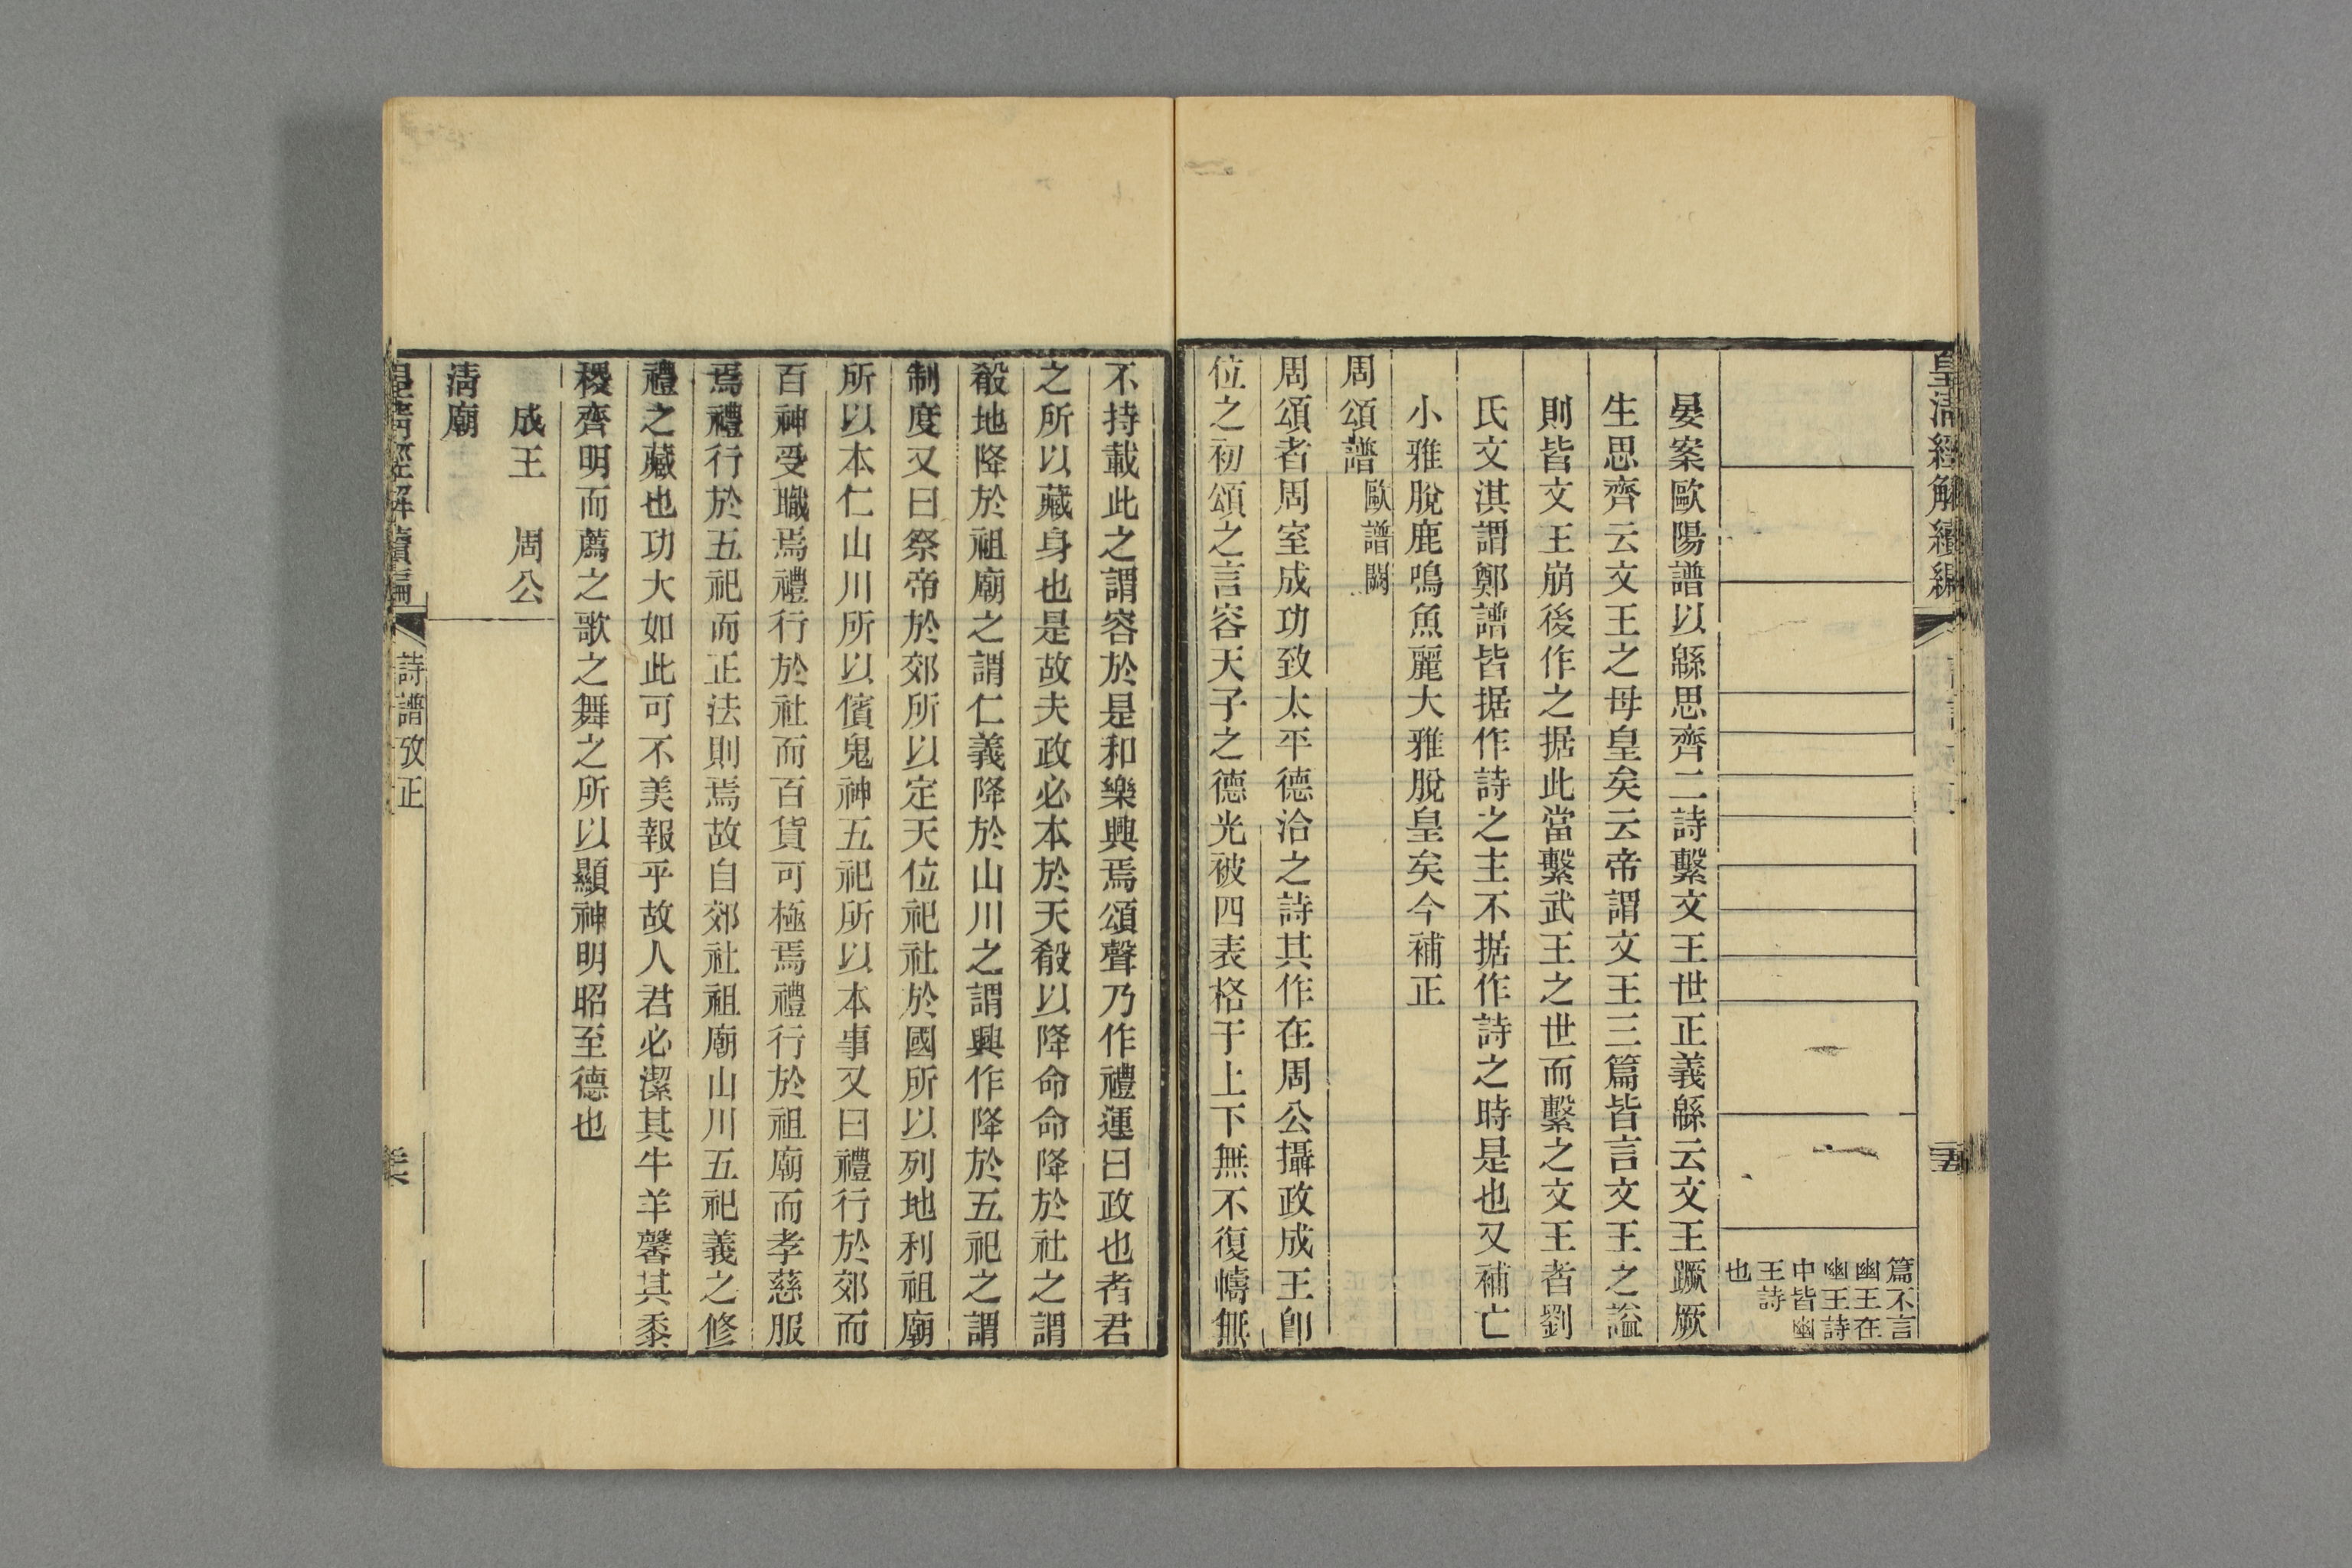 皇清經解續編
篇不言
幽王在
幽王詩
中皆幽
王詩
也
晏案歐陽譜以緜思齊二詩繫文王世正義緜云文王蹶厥
生思齊云文王之母皇矣云帝謂文王三篇皆言文王之諡
則皆文王崩後作之据此當繫武王之世而繫之文王者劉
氏文淇謂鄭譜皆据作詩之主不据作詩之時是也又補亡
小雅脫鹿鳴魚麗大雅脫皇矣今補正
周頌譜歐譜闕
周頌者周室成功致太平德洽之詩其作在周公攝政成王卽
位之初頌之言容天子之德光被四表格于上下無不復幬無
不持載此之謂容於是和樂興焉頌聲乃作禮運曰政也者君
之所以藏身也是故夫政必本於天殽以降命命降於社之謂
殽地降於祖廟之謂仁義降於山川之謂興作降於五祀之謂
制度又曰祭帝於郊所以定天位祀社於國所以列地利祖廟
所以本仁山川所以儐鬼神五祀所以本事又曰禮行於郊而
百神受職焉禮行於社而百貨可極焉禮行於祖廟而孝慈服
焉禮行於五祀而正法則焉故自郊社祖廟山川五祀義之修
禮之藏也功大如此可不美報乎故人君必潔其牛羊馨其黍
稷齊明而薦之歌之舞之所以顯神明昭至德也
成王　周公
清廟
皇清經解續編
詩譜攷正